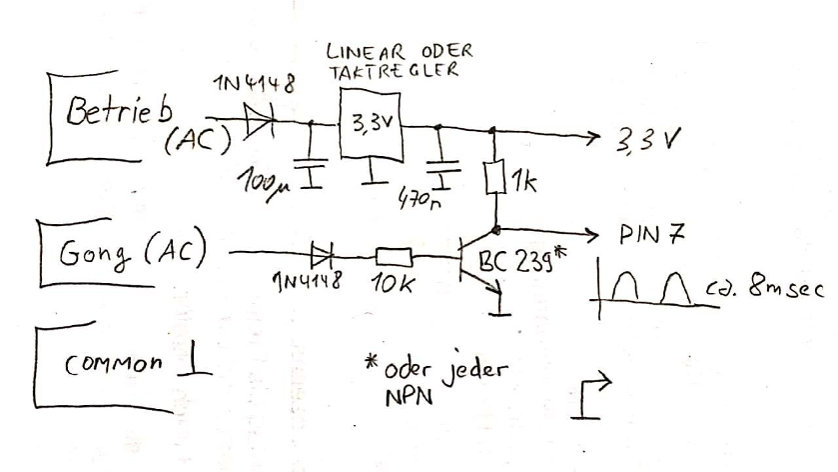 LINEAR ODER
TAKTREGLER
1N4148
Betrieb
(AC)
3,3V
3,3V
100µ
470n
1k
Gong (AC)
1N4148
10K
BC 239*
PIN 7
ca. 8msec
COMMON
*oder jeder
NPN